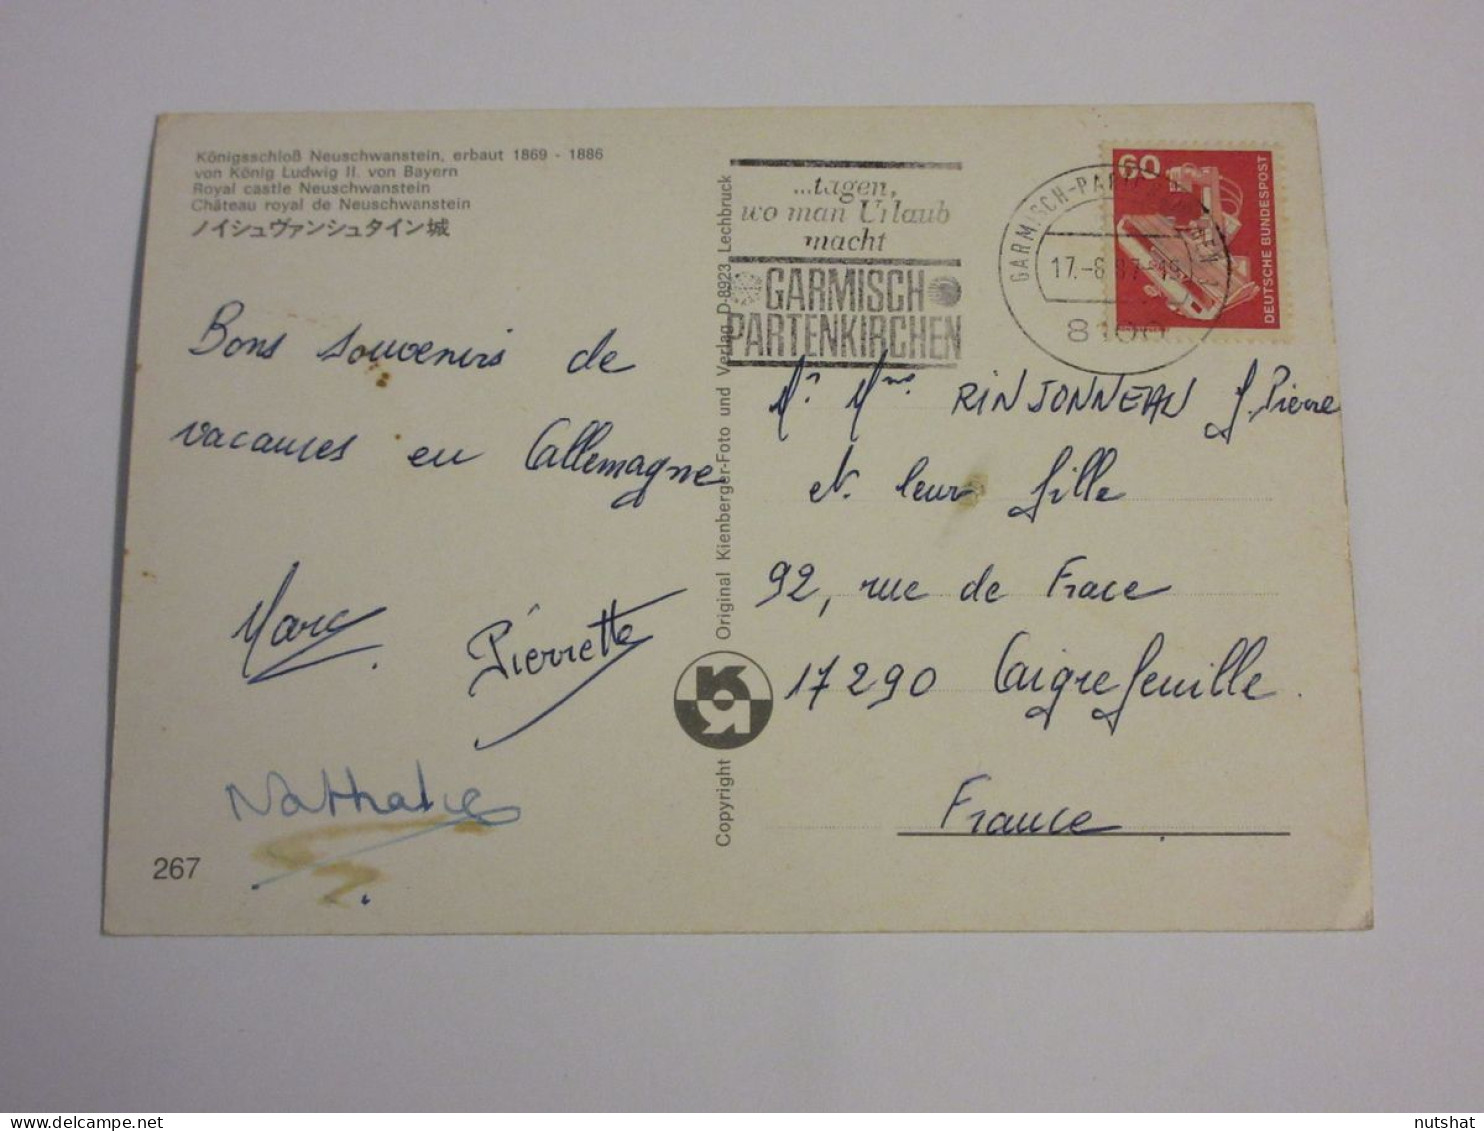 Königsschloß Neuschwanstein, erbaut 1869 - 1886
von König Ludwig II. von Bayern
Royal castle Neuschwanstein
Château royal de Neuschwanstein
ノイシュヴァンシュタイン城
Bons souvenirs de
vacances en Callemagne
Marc
Pierrette
Nathalie
267
Copyright
Original Kienberger-Foto und Verlag D-8923 Lechbruck
...tagen,
wo man Urlaub
macht
GARMISCH
PARTENKIRCHEN
GARMISCH-PARTENKIRCHEN 1
17.-8.87-19
8100
60
DEUTSCHE BUNDESPOST
Mr Mme RINJONNEAU J. Pierre
et leur fille
92, rue de Frace
17290 Caigrefeuille.
France
nutshat